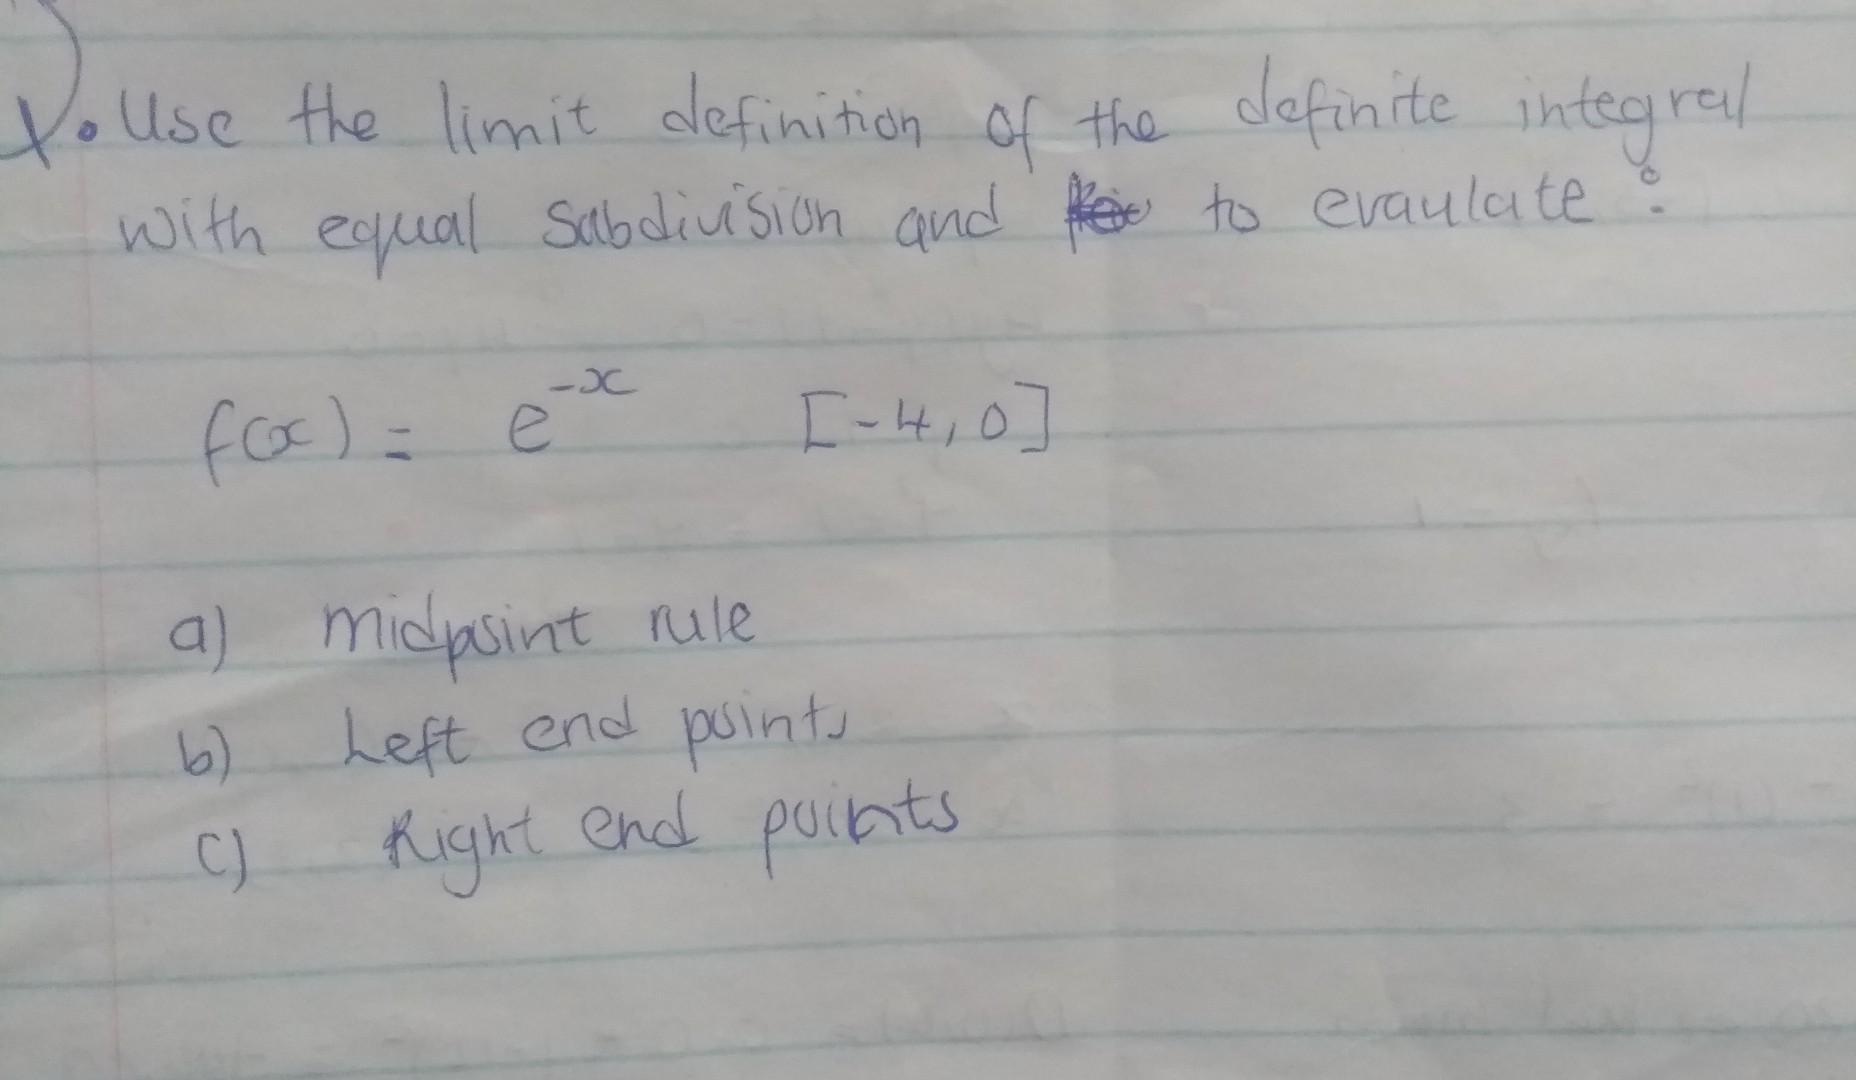 1. Use the limit definition of the definite integral
with equal Subdivision and to evaulate :
f(x) = e^-x [-4,0]
a) midpoint rule
b) Left end points
c) Right end points